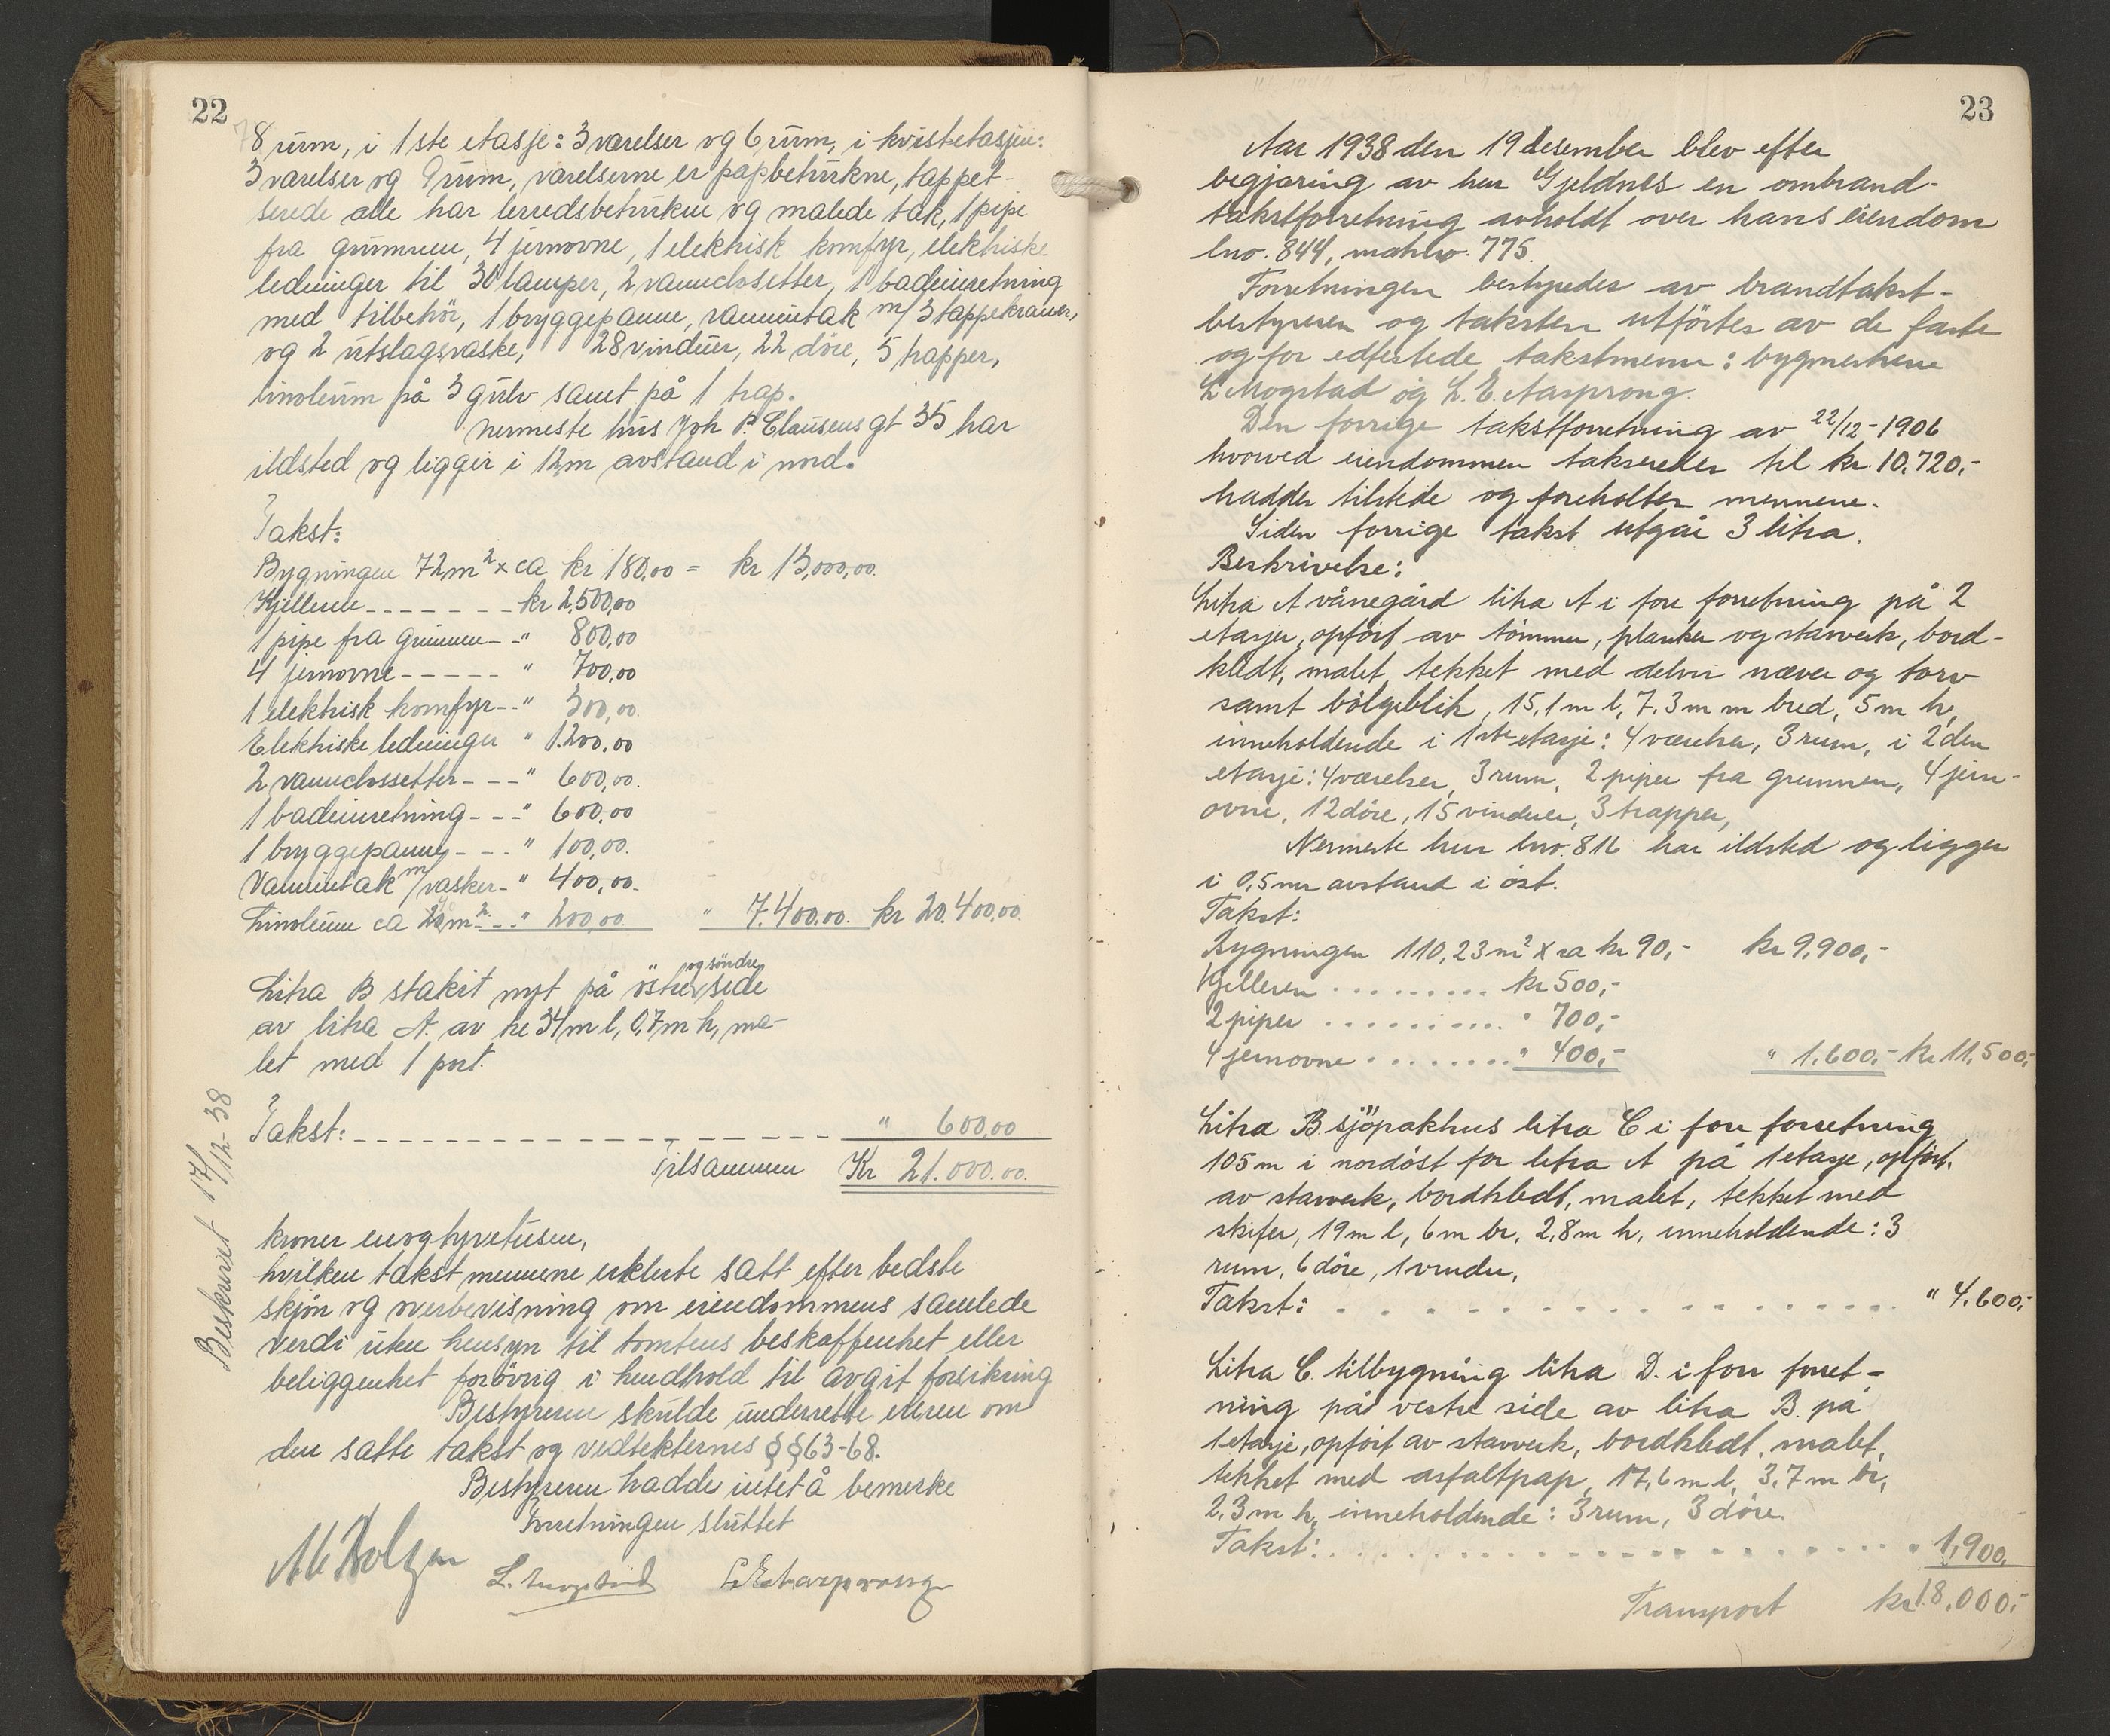 22
8 rum, i 1ste etasje: 3 værelser og 6 rum, i kvistetasjen:
3 værelser og 9 rum, værelserne er papbetrukne, tappet-
serede alle har lerredsbetrukne og malede tak, 1 pipe
fra grunnen, 4 jernovne, 1 elektrisk komfyr, elektriske
ledninger til 30 lamper, 2 vannclosetter, 1 badeinretning
med tilbehör, 1 bryggepanne, vannintak m/3 tappekraner,
og 2 utslagsvaske, 28 vinduer, 22 döre, 5 trapper,
linoleum på 3 gulv samt på 1 trap.
Nermeste hus Joh P. Clausens gt 35 har
ildsted og ligger i 12m avstand i nord.
Takst:
Bygningen 72m² x ca kr 180,00 = kr 13,000,00.
Kjelleren - - - - - - - kr 2,500,00
1 pipe fra grunnen - - " 800,00
4 jernovne - - - - - " 700,00
1 elektrisk komfyr - - " 300,00.
Elektriske ledninger " 1.200.00
2 vannclossetter - - - " 600,00.
1 badeinretning - - - " 600,00
1 bryggepanne - - - " 100,00.
Vanninntak m/vasker - " 400,00.
Linoleum ca m² - - " 200,00. " 7.400.00. kr 20.400,00.
Litra B stakit nyt på östre og söndre side
av litra A. av tre 34m l, 0,7m h, ma-
let med 1 port.
Takst: - - - - - - - - - - - - - - - - " 600,00
Tilsammen Kr 21.000.00.
kroner enogtyvetusen,
hvilken takst mennene erklerte satt efter bedste
skjön og overbevisning om eiendommens samlede
verdi uten hensyn til tomtens beskaffenhet eller
beliggenhet forövrig i hendhold til avgit forsikring
Bestyreren skulde underrette eieren om
den satte takst og vedtekternes §§63-68.
Bestyreren hadde intet å bemerke
Forretningen sluttet
L. Mogstad L. E. Aasprong
Beskrivet 17/12-38
23
Aar 1938 den 19 desember blev efter
begjæring av herr Gjeldnes en ombrand-
takstforretning avholdt over hans eiendom
lnr. 844, matr.nr. 775.
Forretningen bestyredes av brandtakst-
bestyreren og taksten utförtes av de faste
og for edfestede takstmenn: bygmestrene
L Mogstad og L. E. Aasprong.
Den forrige takstforretning av 22/12-1906
hvorved eiendommen takseredes til kr. 10.720,-
haddes tilstede og foreholtes mennene.
Siden forrige takst utgår 3 litra.
Beskrivelse:
Litra A vånegård litra A i forr forretning på 2
etasjer, opfört av tömmer, planker og staverk, bord-
klædt, malet, tekket med delvis næver og torv
samt bölgeblik, 15,1 m l, 7,3 m m bred, 5 m h,
inneholdende i 1ste etasje: 4 værelser, 3 rum, i 2den
etasje: 4 værelser, 3 rum, 2 piper fra grunnen, 4 jern-
ovne, 12 döre, 15 vinduer, 3 trapper,
Nermeste hus lnr. 816 har ildsted og ligger
i 0,5 m avstand i öst.
Takst:
Bygningen 110,23 m² x ca kr 90,- kr 9,900,-
Kjelleren . . . . . . . . . kr 500,-
2 piper . . . . . . . . . . " 700,-
4 jernovne . . . . . . . . . " 400,- " 1.600,- kr 11,500,-
Litra B sjöpakhus litra C i forr forretning
105 m i nordöst for litra A på 1 etasje, opfört
av staverk, bordkledt, malet, tekket med
skifer, 19 m l, 6 m br, 2,8 m h, inneholdende: 3
rum, 6 döre, 1 vindu,
Takst: . . . . . . . . . . . . . . . . . " 4.600,-
Litra C. tilbygning litra D. i forr forret-
ning på vestre side av litra B. på
1 etasje, opfört av staverk, bordkledt, malet,
tekket med asfaltpap, 17,6 m l, 3,7 m br,
2,3 m h, inneholdende: 3 rum, 3 döre.
Takst: . . . . . . . . . . . . . . . . . " 1,900,
Transport kr 18.000,-